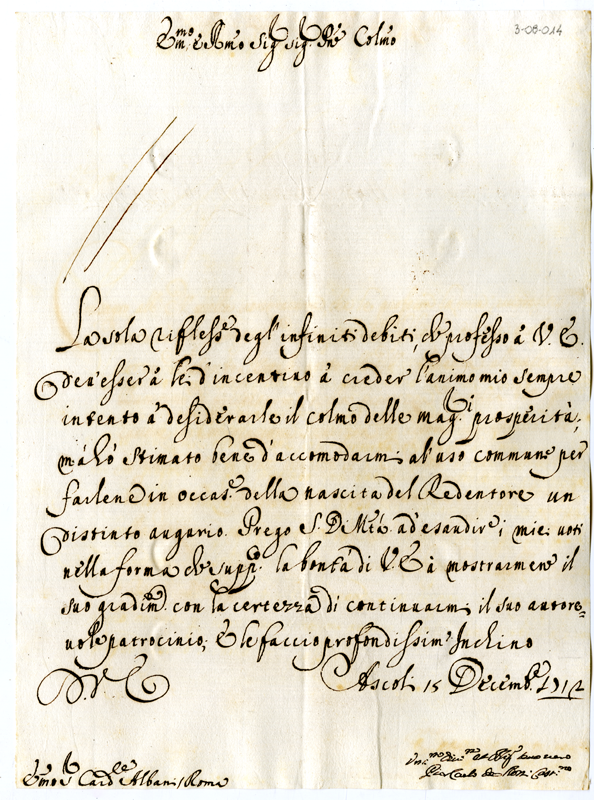 3-08-014
Em.mo e Rmo Sig.r Sig.r Pñe Colmo
La sola rifless.e degl'infiniti debiti, che professo à V. E.
deu'esserà lei d'incentiuo à creder l'animo mio sempre
intento à desiderarle il colmo delle mag.ri prosperità;
mà hò stimato bene d'accomodarmi al'uso commune per
farlene in occas.e della nascita del Redentore un
distinto augurio. Prego S. D. Mtà. ad'esaudire i miei uoti
nella forma che supp.co la bontà di V. E. à mostrarmene il
suo gradim.to con la certezza di continuarmi il suo autore=
uole patrocinio; E le faccio profondissimo Inchino
D. V. E.
Ascoli 15 Decemb.e 1712
Em.o S.r Card.le Albani / Roma